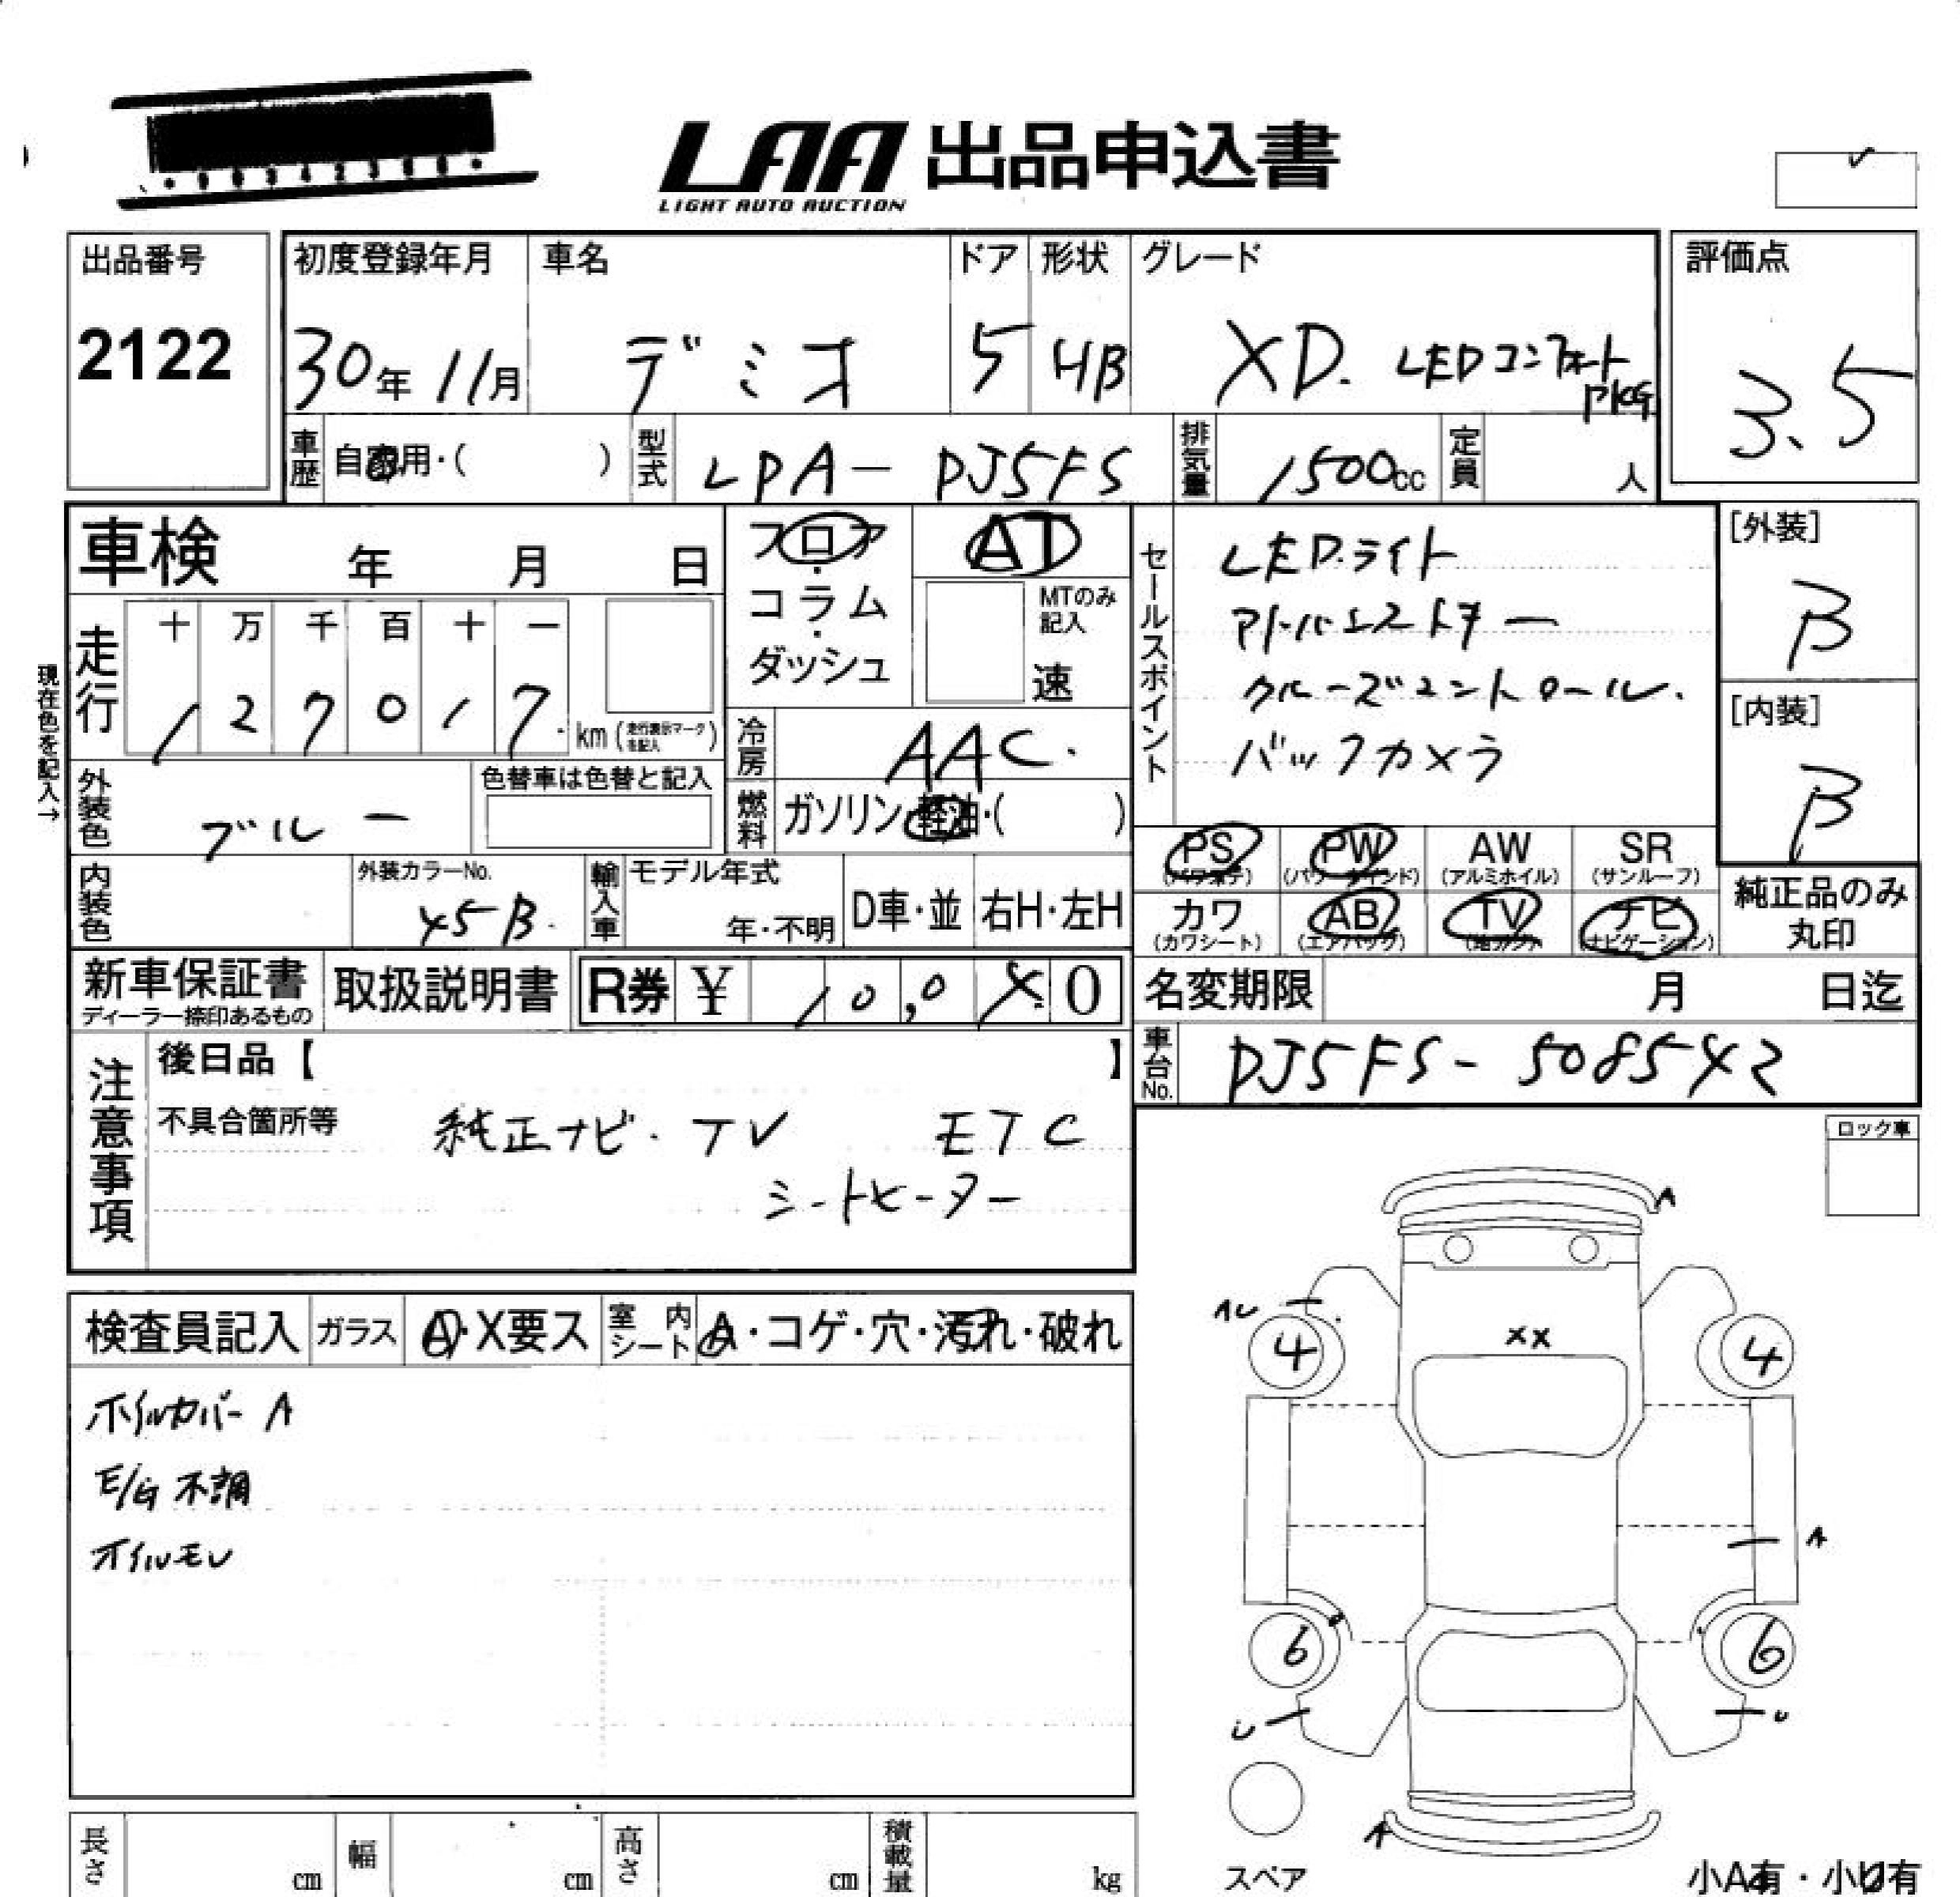 LAA 出品申込書
LIGHT AUTO AUCTION
出品番号
2122
初度登録年月
30年 11月
車名
デミオ
ドア
5
形状
HB
グレード
XD. LEDコンフォート
PKG
評価点
3.5
車歴 自家用・( )
型式 LDA-DJ5FS
排気量 1500cc
定員 人
車検 年 月 日
フロア・コラム・ダッシュ
AT
MTのみ記入
速
セールスポイント
LEDライト
アドバンストキー
クルーズコントロール.
バックカメラ
[外装]
B
[内装]
B
現在色を記入→
走行 十 万 千 百 十 一
1 2 7 0 1 7 km (走行表示マークを記入)
冷房 AAC.
燃料 ガソリン・軽油・( )
外装色 ブルー
色替車は色替と記入
内装色
外装カラーNo.
45B.
輸入車 モデル年式
年・不明
D車・並
右H・左H
PS (パワステ)
PW (パワーウインド)
AW (アルミホイル)
SR (サンルーフ)
カワ (カワシート)
AB (エアバッグ)
TV
ナビ (ナビゲーション)
純正品のみ丸印
新車保証書
ディーラー捺印あるもの
取扱説明書
R券 ¥ 10,0 0
名変期限 月 日迄
車台No. DJ5FS-508542
注意事項
後日品【 】
不具合箇所等
純正ナビ・TV ETC
シートヒーター
ロック車
検査員記入
ガラス A・X要ス
室内シート A・コゲ・穴・汚れ・破れ
ホイルカバー A
E/G 不調
オイルモレ
A
AU
4
XX
4
A
6
6
U
U
A
スペア
小A有・小U有
長さ cm
幅 cm
高さ cm
積載量 kg